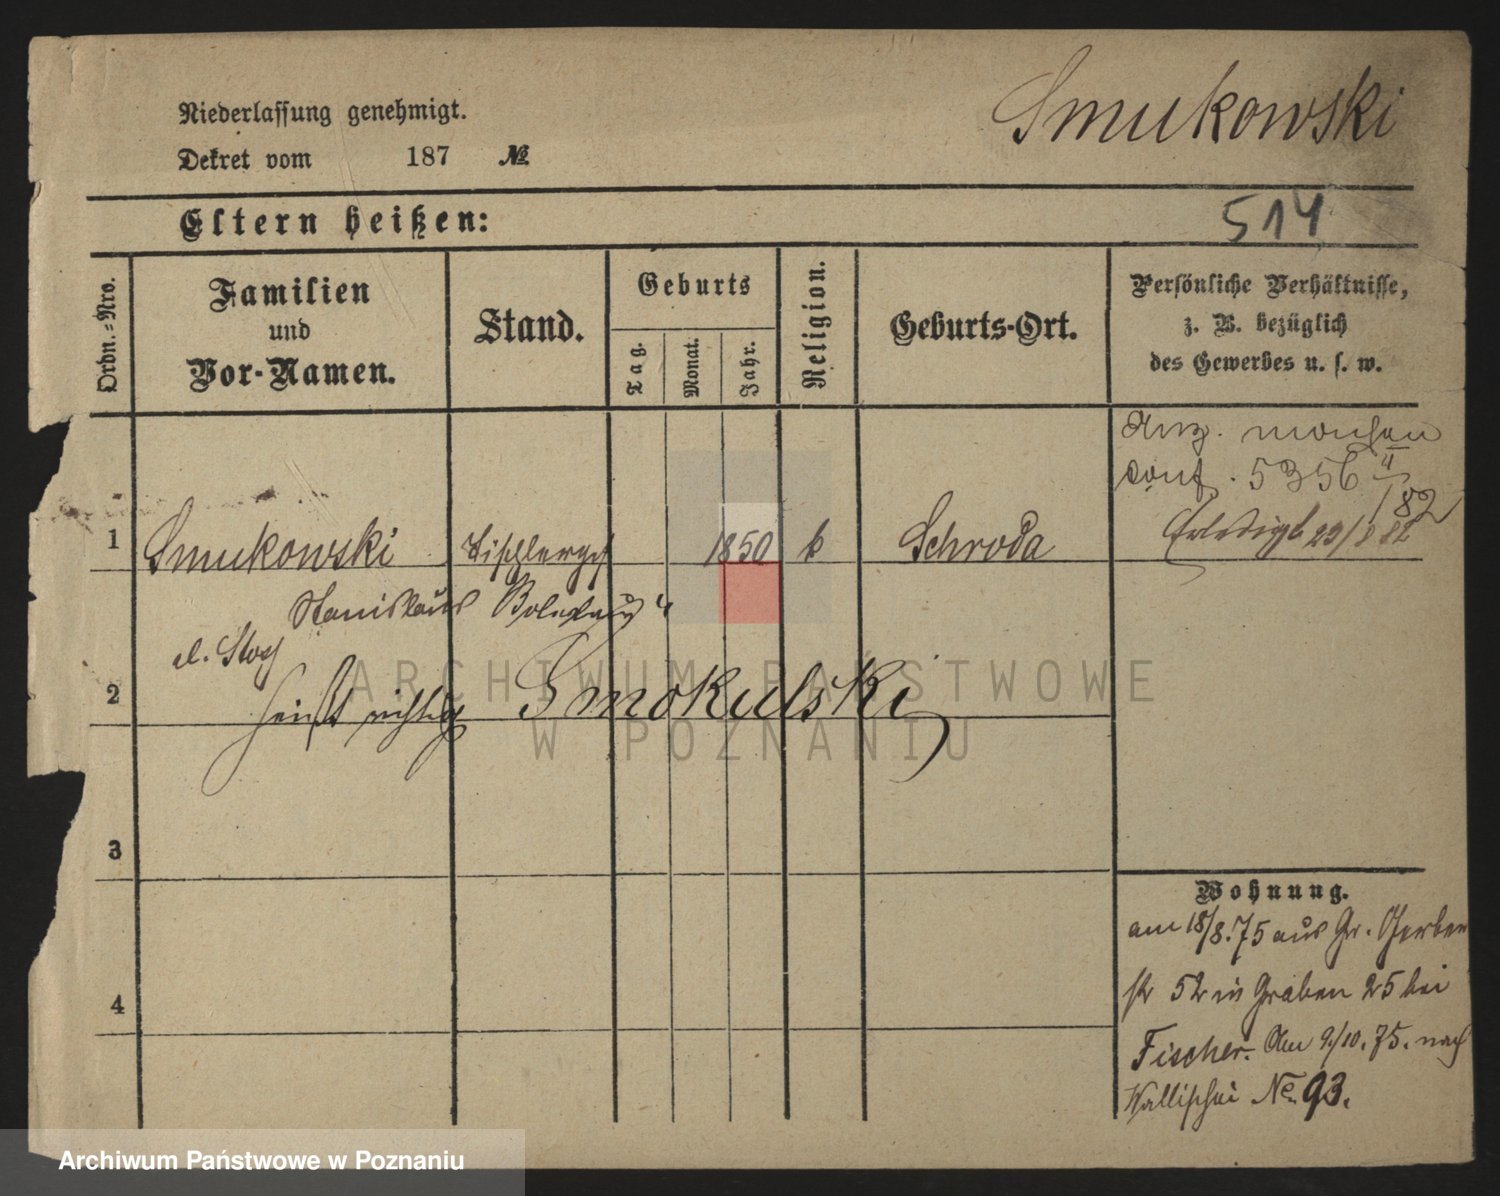 Niederlassung genehmigt.
Smukowski
Dekret vom 187 №
Eltern heißen:
514
Ordn.-Nro.
Familien
und
Vor-Namen.
Stand.
Geburts
Tag.
Monat.
Jahr.
Religion.
Geburts-Ort.
Persönliche Verhältnisse,
z. B. bezüglich
des Gewerbes u. s. w.
5356 4/82
Erledigt 23/8 82
1 Smukowski Tischlerges 1850 k Schroda
Stanislaus Boleslaus
2 heißt richtig Smokulski
3
4
Wohnung.
am 18/8.75 aus Gr. Gerber
str 52 in Graben 25 bei
Fischer. Am 9/10.75. nach
Wallischei No. 93.
ARCHIWUM PAŃSTWOWE
W POZNANIU
Archiwum Państwowe w Poznaniu